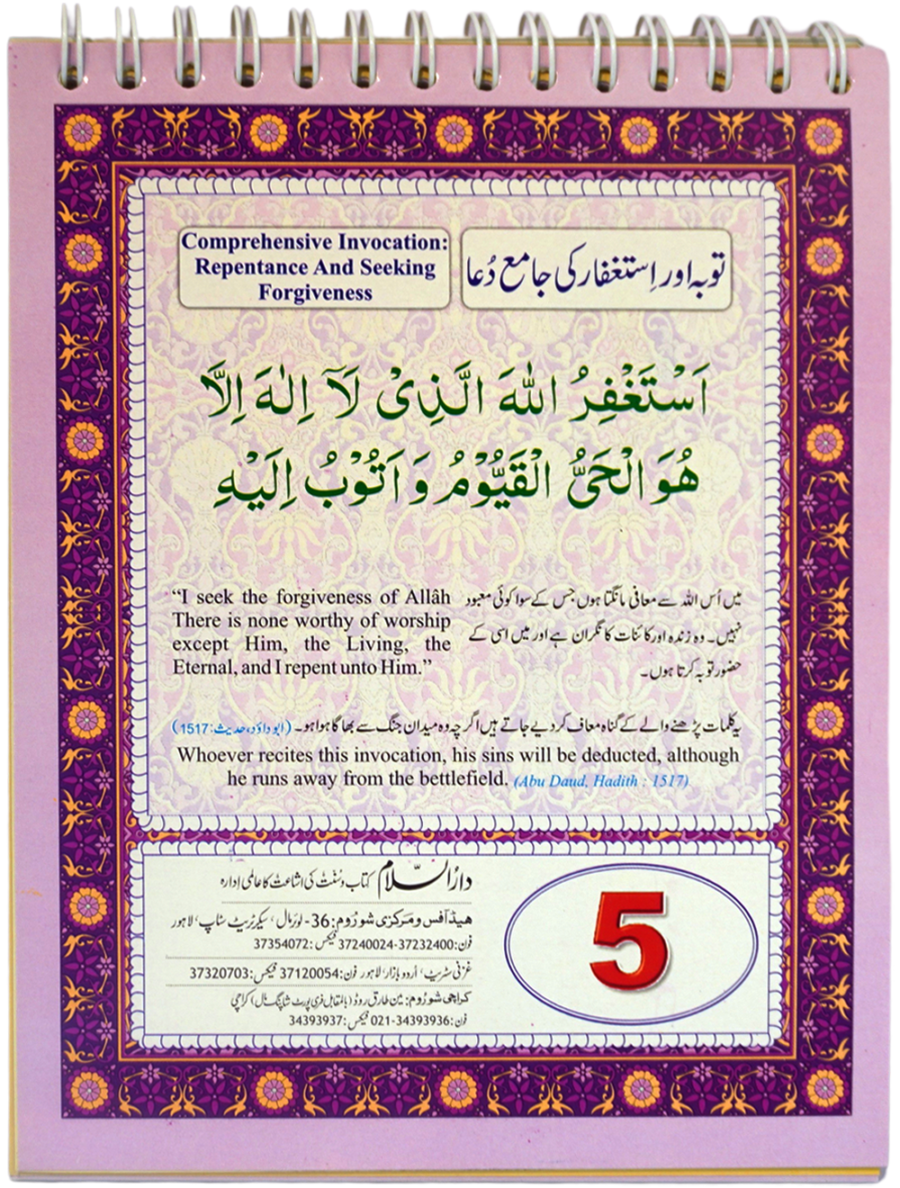 Comprehensive Invocation:
Repentance And Seeking
Forgiveness
توبہ اور اِستغفار کی جامع دُعا
اَسْتَغْفِرُ اللهَ الَّذِىْ لَآ اِلٰهَ اِلَّا
هُوَ الْحَىُّ الْقَيُّوْمُ وَاَتُوْبُ اِلَيْهِ
“I seek the forgiveness of Allâh
There is none worthy of worship
except Him, the Living, the
Eternal, and I repent unto Him.”
میں اُس اللہ سے معافی مانگتا ہوں جس کے سوا کوئی معبود
نہیں۔ وہ زندہ اور کائنات کا نگران ہے اور میں اسی کے
حضور توبہ کرتا ہوں۔
یہ کلمات پڑھنے والے کے گناہ معاف کر دیے جاتے ہیں اگرچہ وہ میدان جنگ سے بھاگا ہوا ہو۔ (ابوداؤد، حدیث: 1517)
Whoever recites this invocation, his sins will be deducted, although
he runs away from the bettlefield. (Abu Daud, Hadith : 1517)
دارُالسّلام کتاب و سنت کی اشاعت کا عالمی ادارہ
ھیڈ آفس و مرکزی شو رُوم: 36- لوئر مال، سیکرٹریٹ سٹاپ، لاہور
فون: 37232400-37240024 فیکس: 37354072
غزنی سٹریٹ، اُردو بازار، لاہور فون: 37120054 فیکس: 37320703
کراچی شو رُوم: مین طارق روڈ (بالمقابل فری پورٹ شاپنگ مال) کراچی
فون: 021-34393936 فیکس: 34393937
5